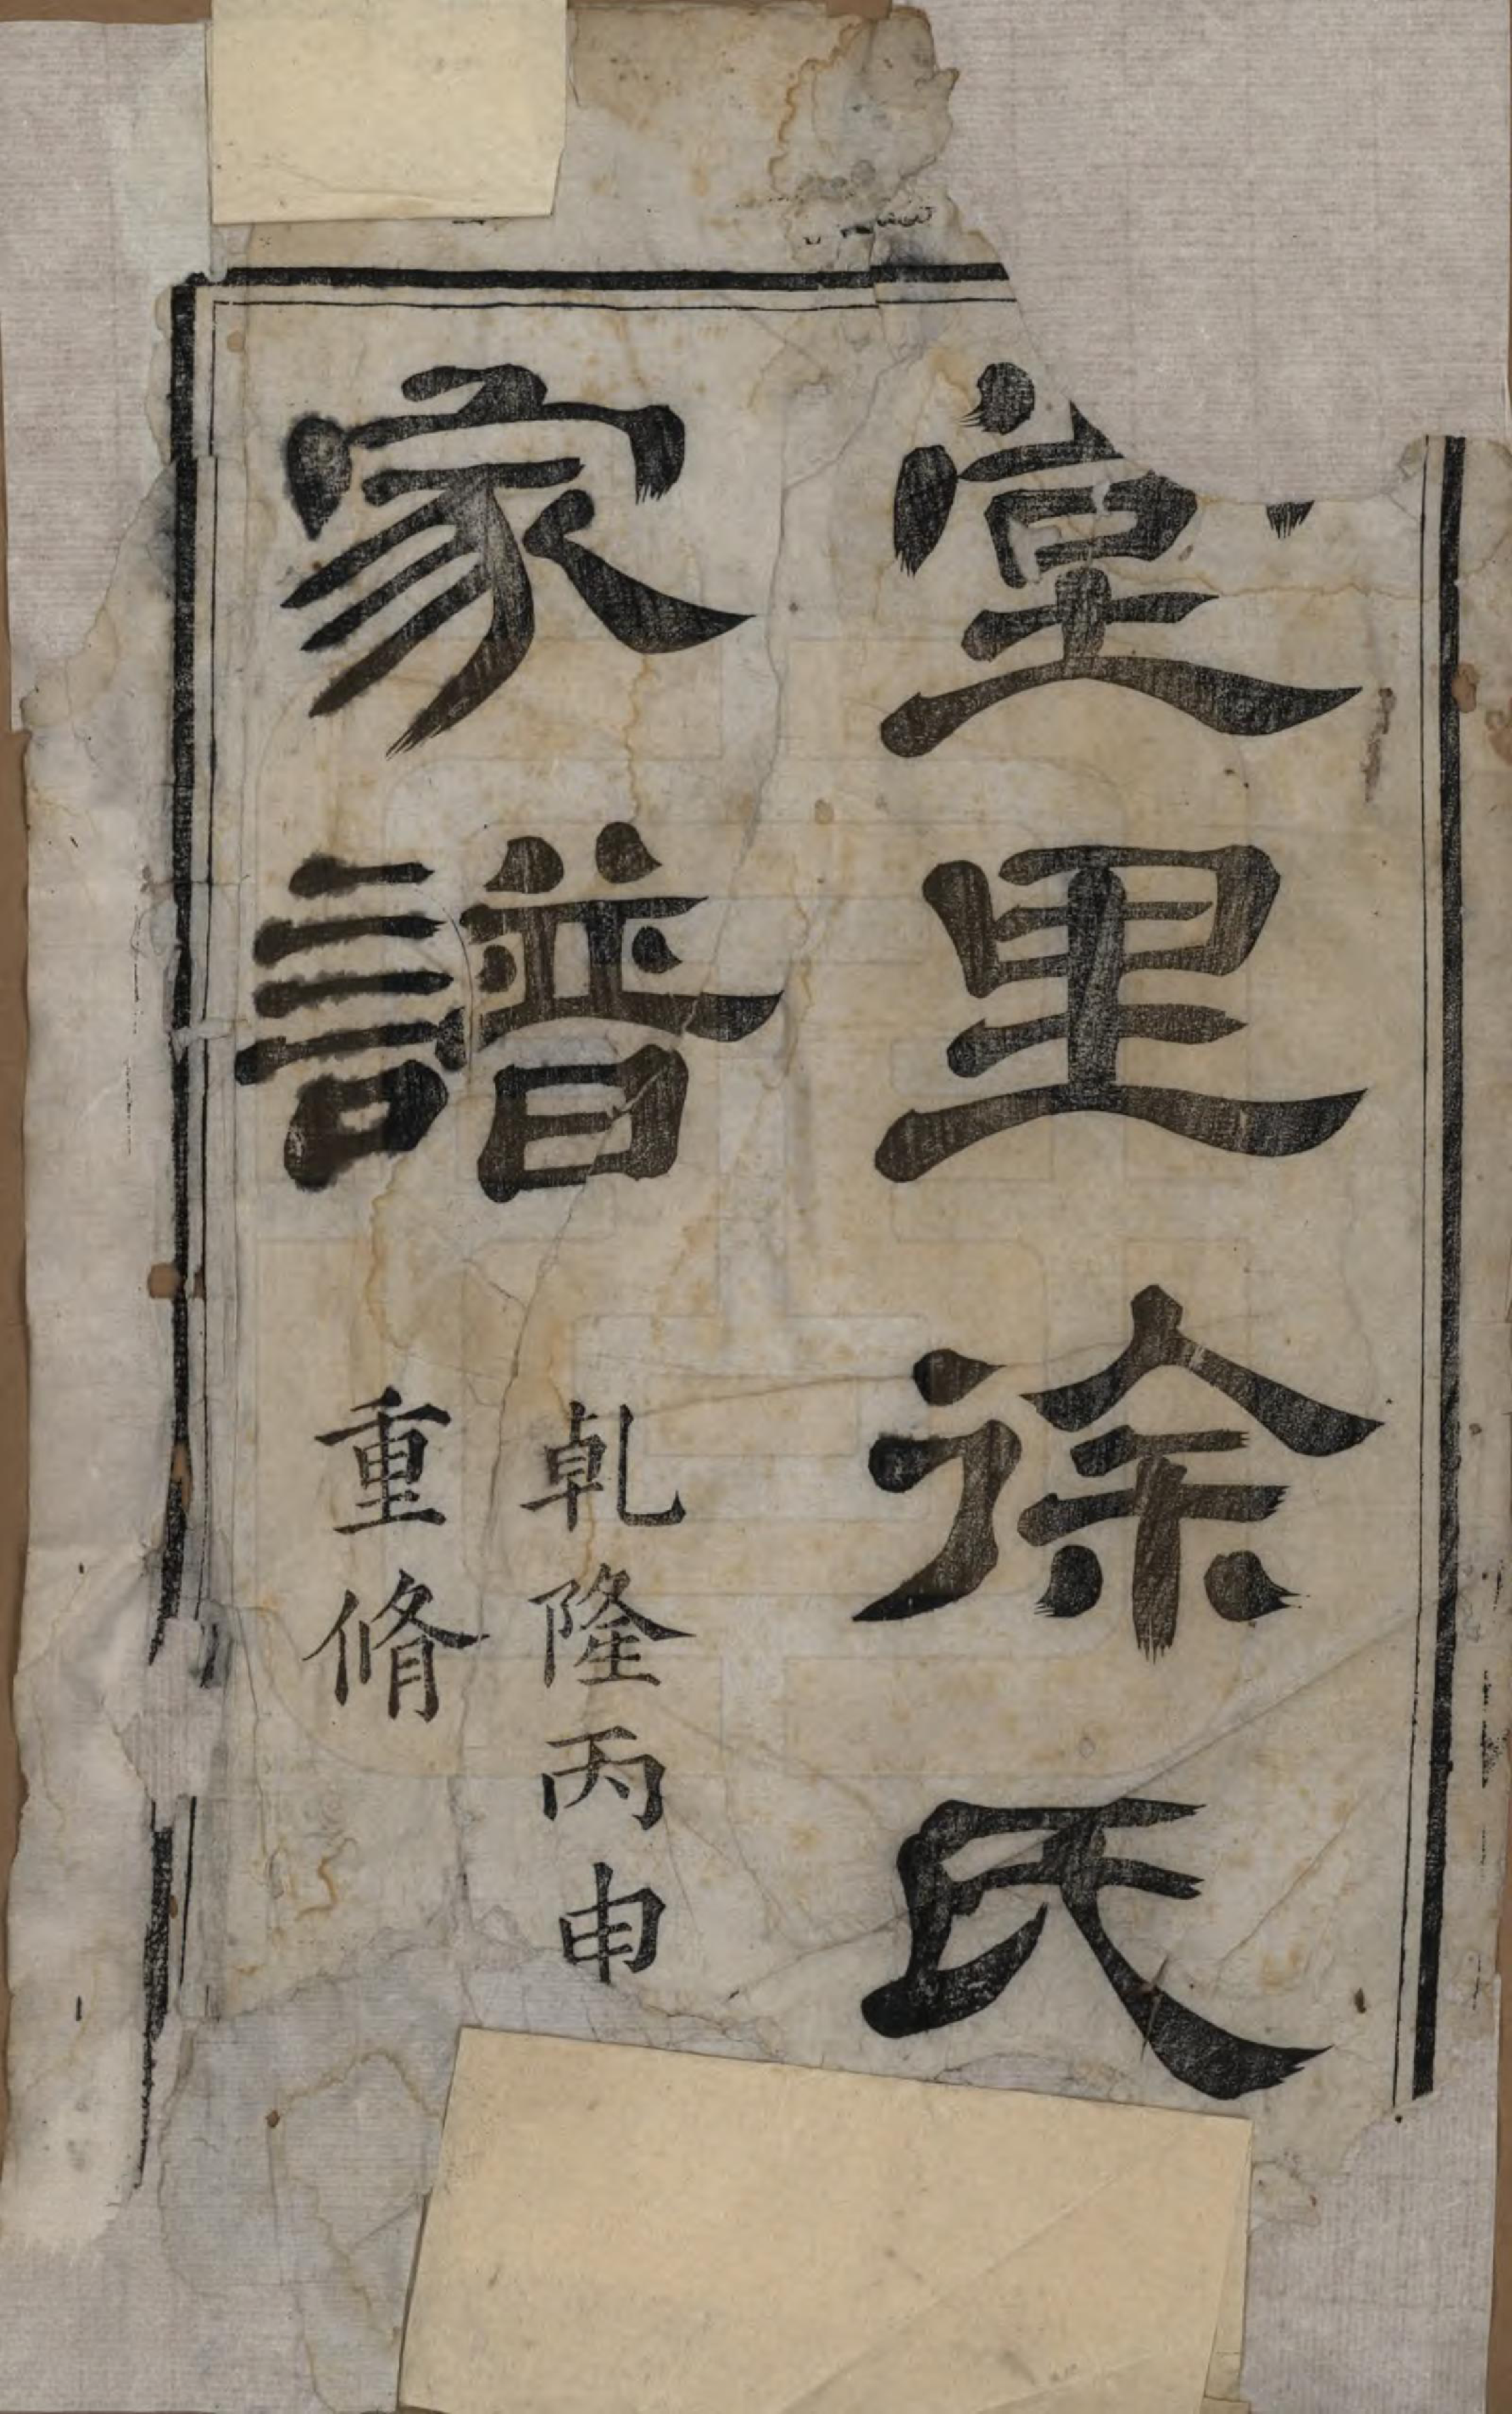 堂里徐氏
家譜
乹隆丙申
重脩